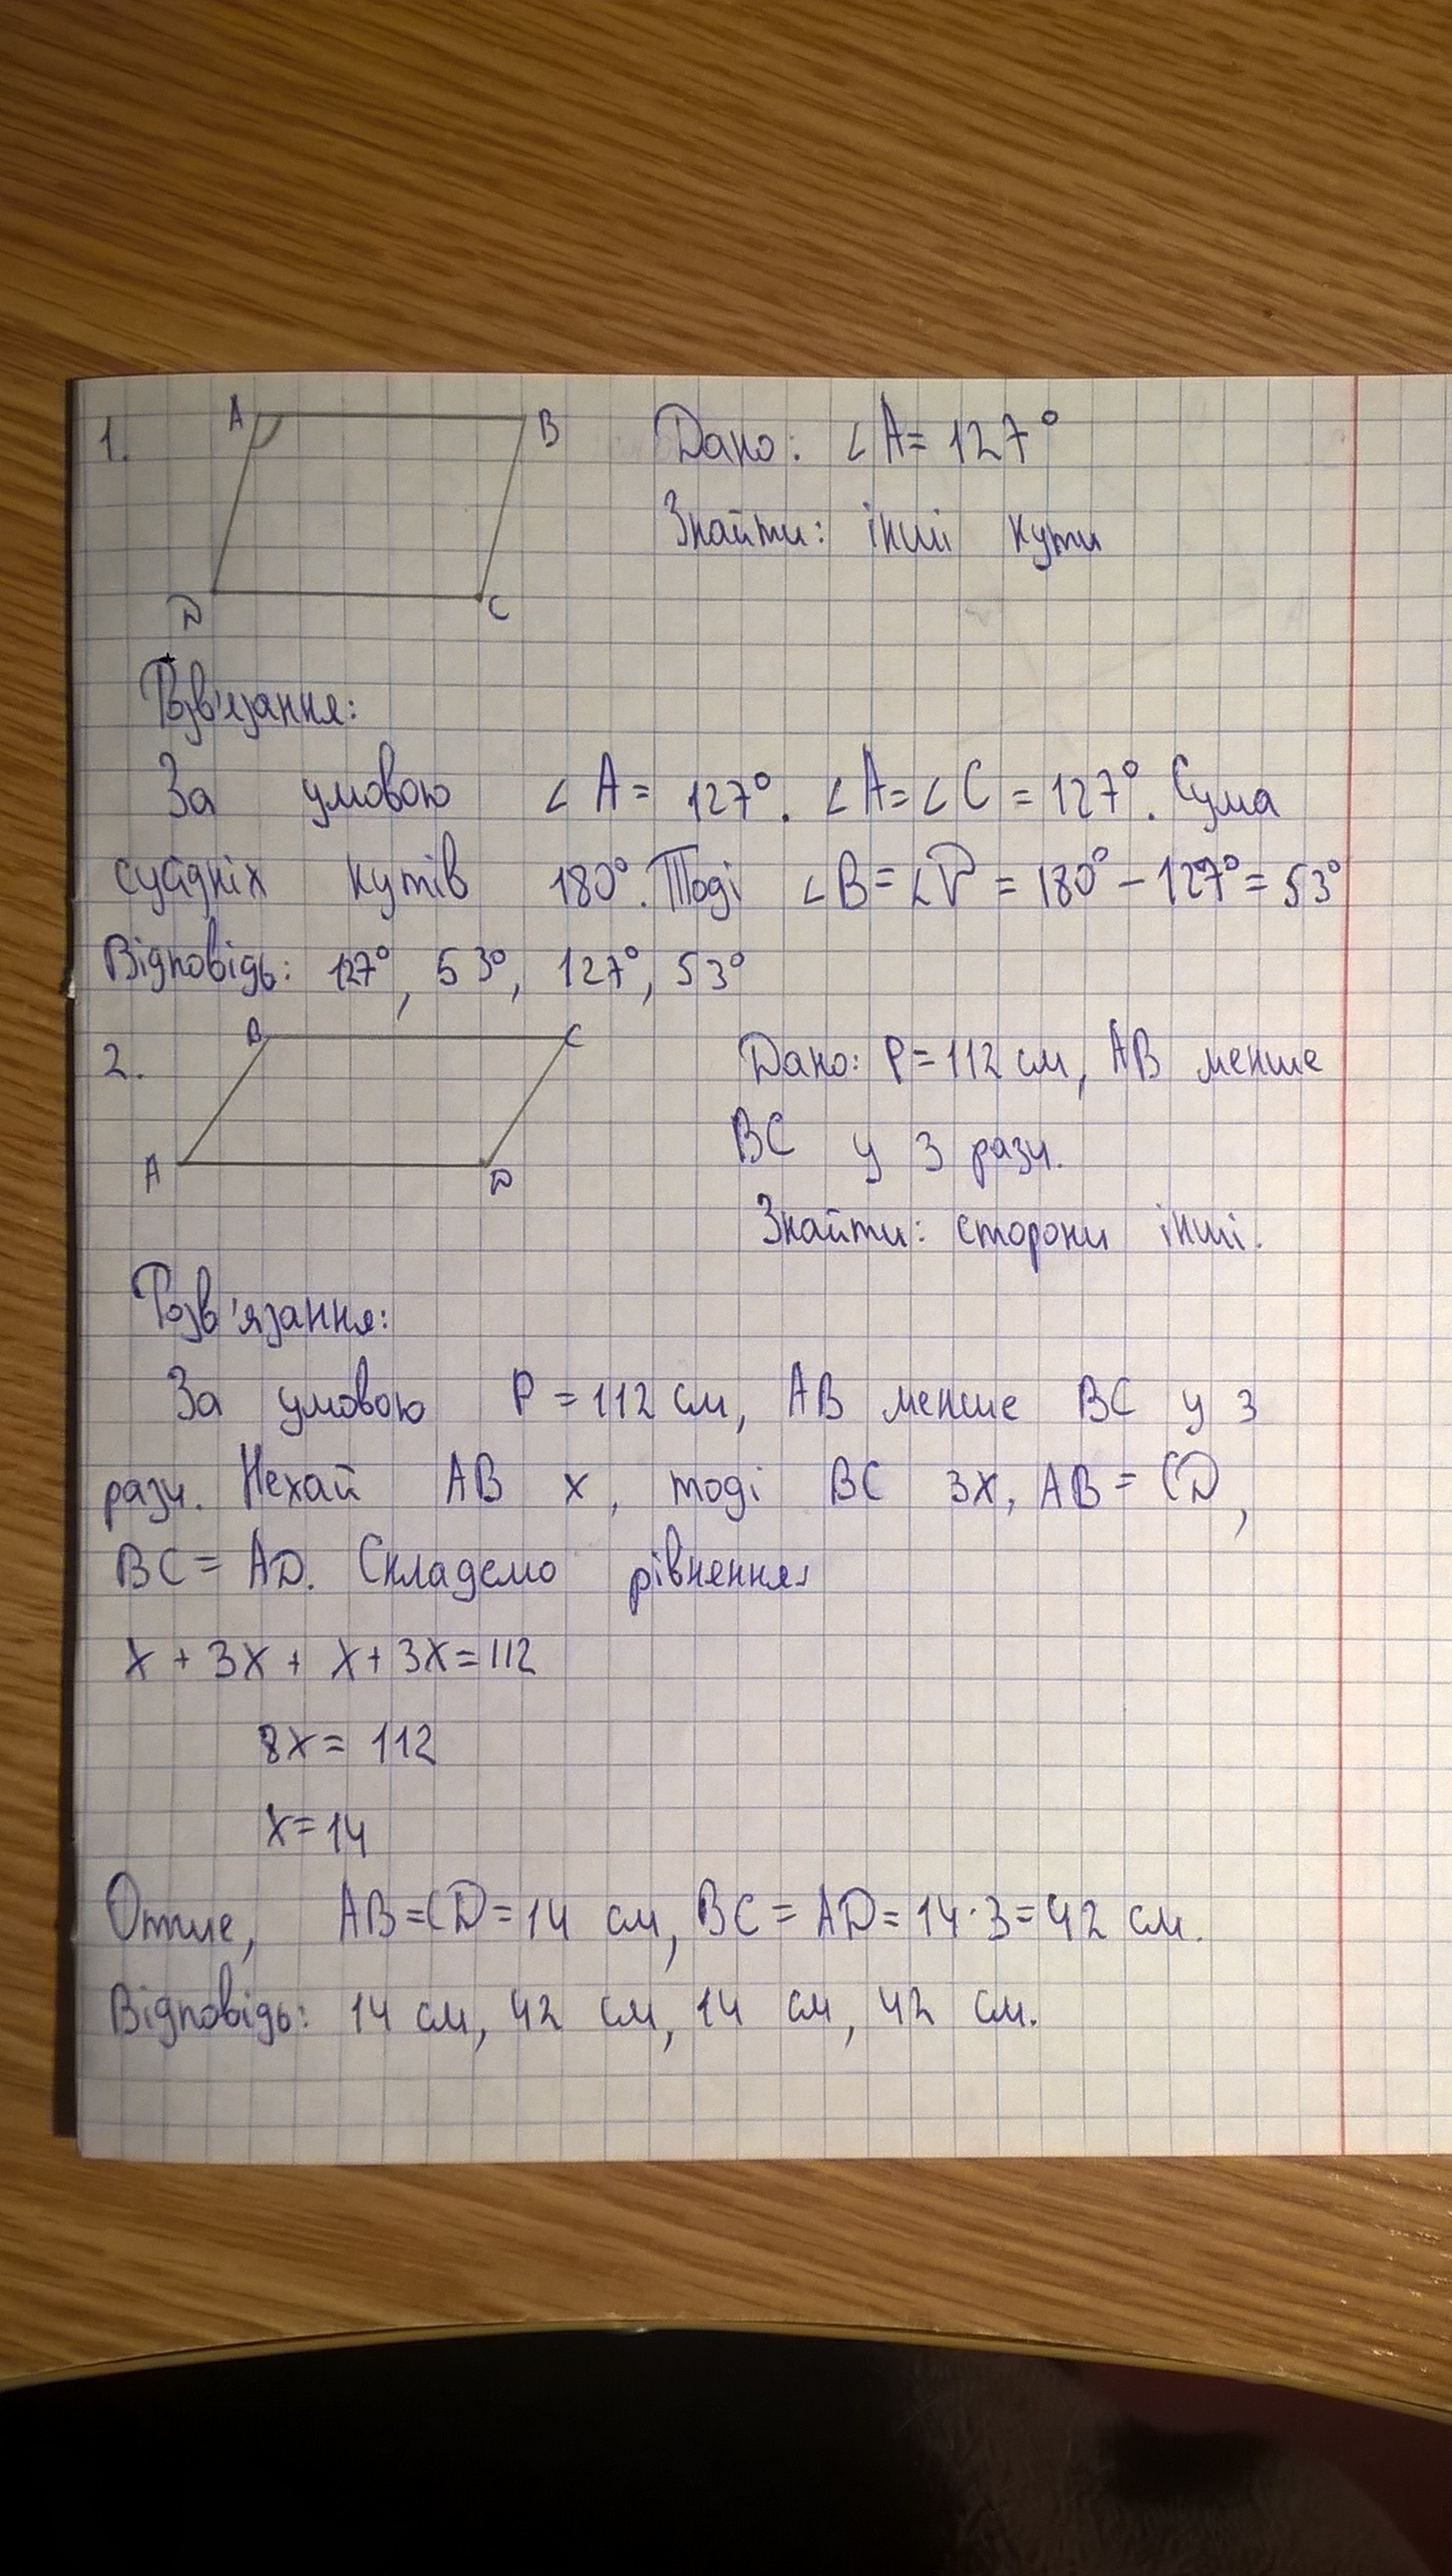 1.
A
B
D
C
Дано: ∠A = 127°
Знайти: інші кути
Розв'язання:
За умовою ∠A = 127°. ∠A = ∠C = 127°. Сума
сусідніх кутів 180°. Тоді ∠B = ∠D = 180° - 127° = 53°
Відповідь: 127°, 53°, 127°, 53°
2.
B
C
A
D
Дано: P = 112 см, AB менше
BC у 3 рази.
Знайти: сторони інші.
Розв'язання:
За умовою P = 112 см, AB менше BC у 3
рази. Нехай AB x, тоді BC 3x, AB = CD,
BC = AD. Складемо рівнення
x + 3x + x + 3x = 112
8x = 112
x = 14
Отже, AB = CD = 14 см, BC = AD = 14 · 3 = 42 см.
Відповідь: 14 см, 42 см, 14 см, 42 см.